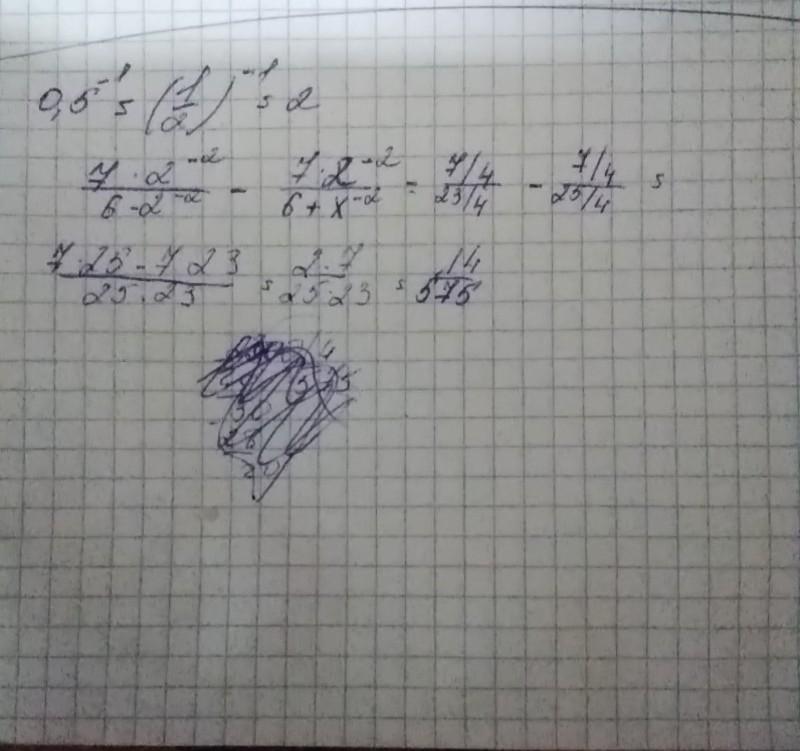 0,5⁻¹ = (1/2)⁻¹ = 2
7·2⁻²/6-2⁻² - 7·2⁻²/6+x⁻² = 7/4/23/4 - 7/4/25/4 =
7·25-7 23/25·23 = 2·7/25·23 = 14/575